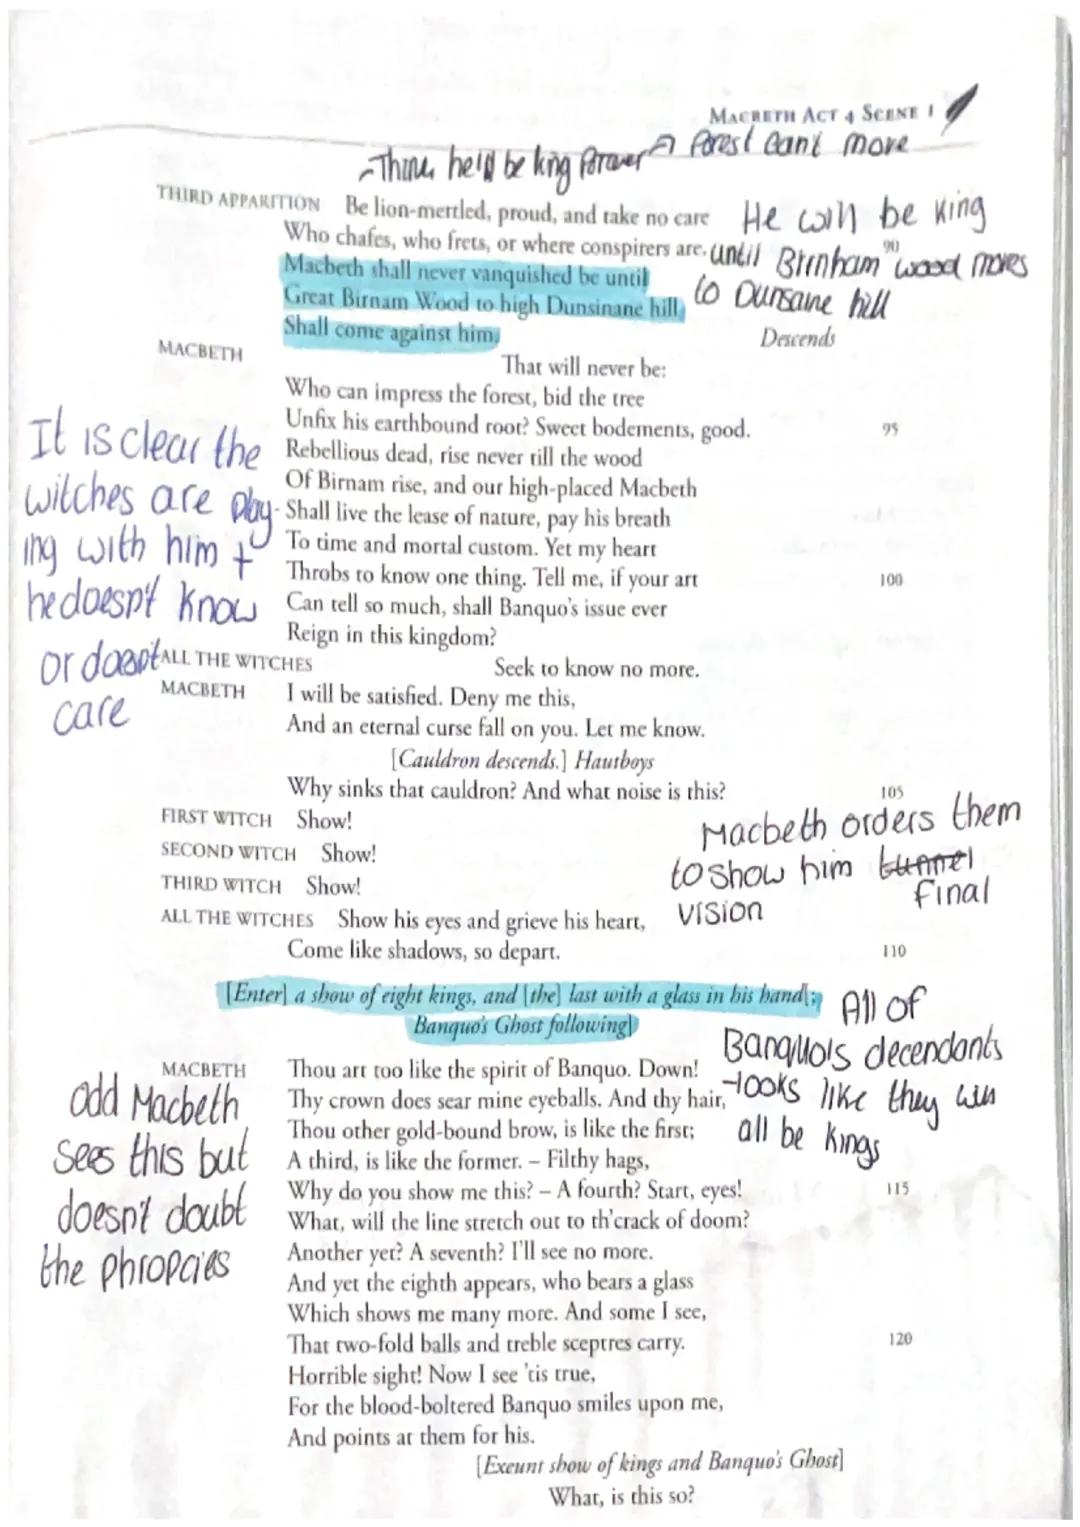 MACBETH ACT 4 SCENE 1
-Think he'll be king forever → forest can't move
THIRD APPARITION Be lion-mettled, proud, and take no care
He will be king
Who chafes, who frets, or where conspirers are. 90
until Birnham wood moves
Macbeth shall never vanquished be until
to Dunsane hill
Great Birnam Wood to high Dunsinane hill
Shall come against him. Descends
MACBETH That will never be:
Who can impress the forest, bid the tree
Unfix his earthbound root? Sweet bodements, good. 95
Rebellious dead, rise never till the wood
Of Birnam rise, and our high-placed Macbeth
Shall live the lease of nature, pay his breath
To time and mortal custom. Yet my heart
Throbs to know one thing. Tell me, if your art 100
Can tell so much, shall Banquo's issue ever
Reign in this kingdom?
It is clear the
witches are play-
ing with him +
he doesn't know
or doesnt
care
ALL THE WITCHES Seek to know no more.
MACBETH I will be satisfied. Deny me this,
And an eternal curse fall on you. Let me know.
[Cauldron descends.] Hautboys
Why sinks that cauldron? And what noise is this? 105
FIRST WITCH Show!
SECOND WITCH Show!
THIRD WITCH Show!
Macbeth orders them
to show him tunnel
final
vision
ALL THE WITCHES Show his eyes and grieve his heart,
Come like shadows, so depart. 110
[Enter] a show of eight kings, and [the] last with a glass in his hand[;
Banquo's Ghost following]
All of
Banquo's decendants
-looks like they will
all be kings
MACBETH Thou art too like the spirit of Banquo. Down!
Thy crown does sear mine eyeballs. And thy hair,
Thou other gold-bound brow, is like the first;
A third, is like the former. – Filthy hags,
Why do you show me this? – A fourth? Start, eyes! 115
What, will the line stretch out to th'crack of doom?
Another yet? A seventh? I'll see no more.
And yet the eighth appears, who bears a glass
Which shows me many more. And some I see,
That two-fold balls and treble sceptres carry. 120
Horrible sight! Now I see 'tis true,
For the blood-boltered Banquo smiles upon me,
And points at them for his.
odd Macbeth
sees this but
doesn't doubt
the phropcies
[Exeunt show of kings and Banquo's Ghost]
What, is this so?